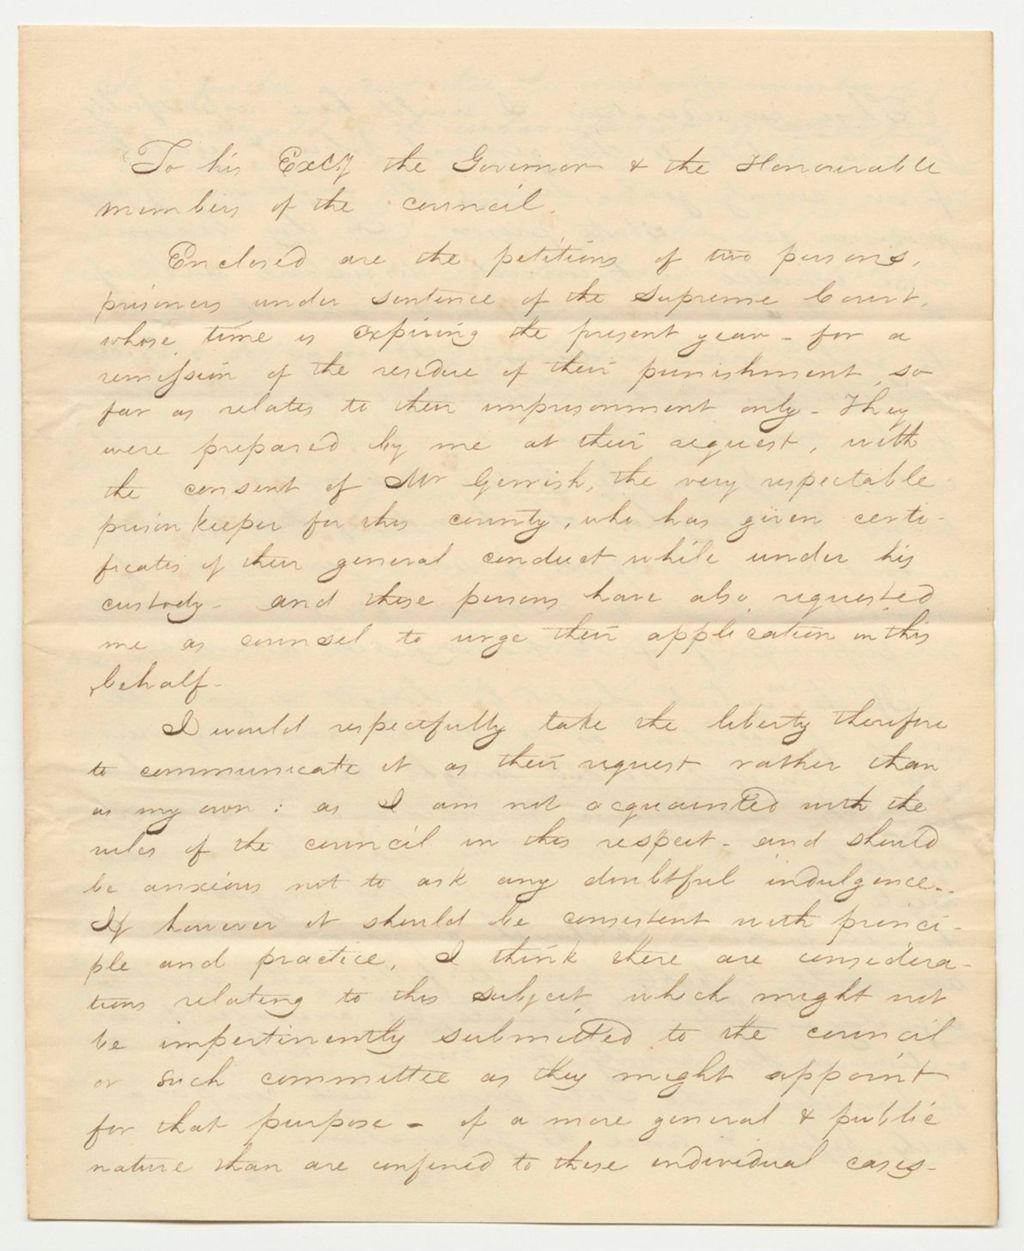 To his Excy the Governor & the Honourable
members of the council.
Enclosed are the petitions of two persons,
prisoners under sentence of the Supreme Court,
whose time is expiring the present year - for a
remission of the residue of their punishment, so
far as relates to their imprisonment only - They
were prepared by me at their request, with
the consent of Mr Gerrish, the very respectable
prison keeper for this county, who has given certi-
ficates of their general conduct while under his
custody - and these persons have also requested
me as counsel to urge their application in this
behalf -
I would respectfully take the liberty therefore
to communicate it as their request rather than
as my own: as I am not acquainted with the
rules of the council in this respect - and should
be anxious not to ask any doubtful indulgence -
If however it should be consistent with princi-
ple and practice, I think there are considera-
tions relating to this subject which might not
be impertinently submitted to the council
or such committee as they might appoint
for that purpose - of a more general & public
nature than are confined to these individual cases -